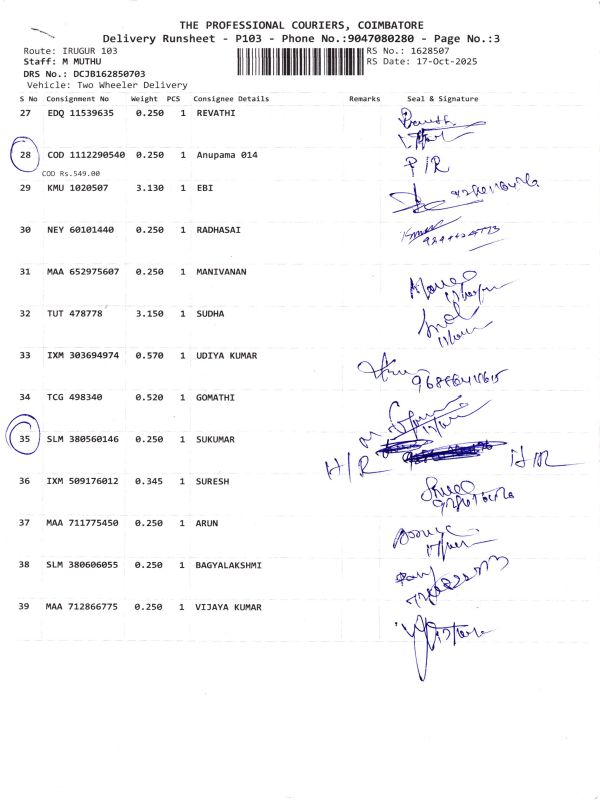 THE PROFESSIONAL COURIERS, COIMBATORE
Delivery Runsheet - P103 - Phone No.:9047080280 - Page No.:3
Route: IRUGUR 103
RS No.: 1628507
Staff: M MUTHU
RS Date: 17-Oct-2025
DRS No.: DCJB162850703
Vehicle: Two Wheeler Delivery
S No Consignment No Weight PCS Consignee Details Remarks Seal & Signature
27 EDQ 11539635 0.250 1 REVATHI
28 COD 1112290540 0.250 1 Anupama 014 P/R
COD Rs.549.00
29 KMU 1020507 3.130 1 EBI
30 NEY 60101440 0.250 1 RADHASAI
31 MAA 652975607 0.250 1 MANIVANAN
32 TUT 478778 3.150 1 SUDHA
33 IXM 303694974 0.570 1 UDIYA KUMAR
34 TCG 498340 0.520 1 GOMATHI
35 SLM 380560146 0.250 1 SUKUMAR
H/R
36 IXM 509176012 0.345 1 SURESH
37 MAA 711775450 0.250 1 ARUN
38 SLM 380606055 0.250 1 BAGYALAKSHMI
39 MAA 712866775 0.250 1 VIJAYA KUMAR